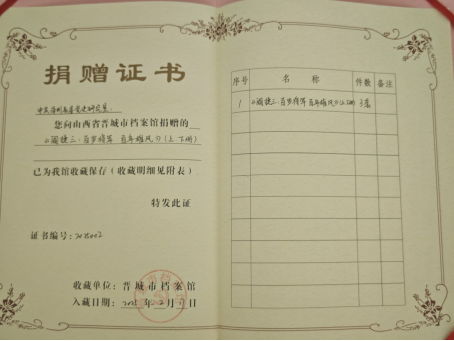 捐赠证书
中共泽州县委党史研究室
您向山西省晋城市档案馆捐赠的
《阎捷三·百岁将军 百年雄风》(上、下册)
已为我馆收藏保存(收藏明细见附表)
特发此证
证书编号:
收藏单位:晋城市档案馆
入藏日期: 年 月 日
序号 名称 件数 备注
1 《阎捷三·百岁将军 百年雄风》(上、下册) 3套